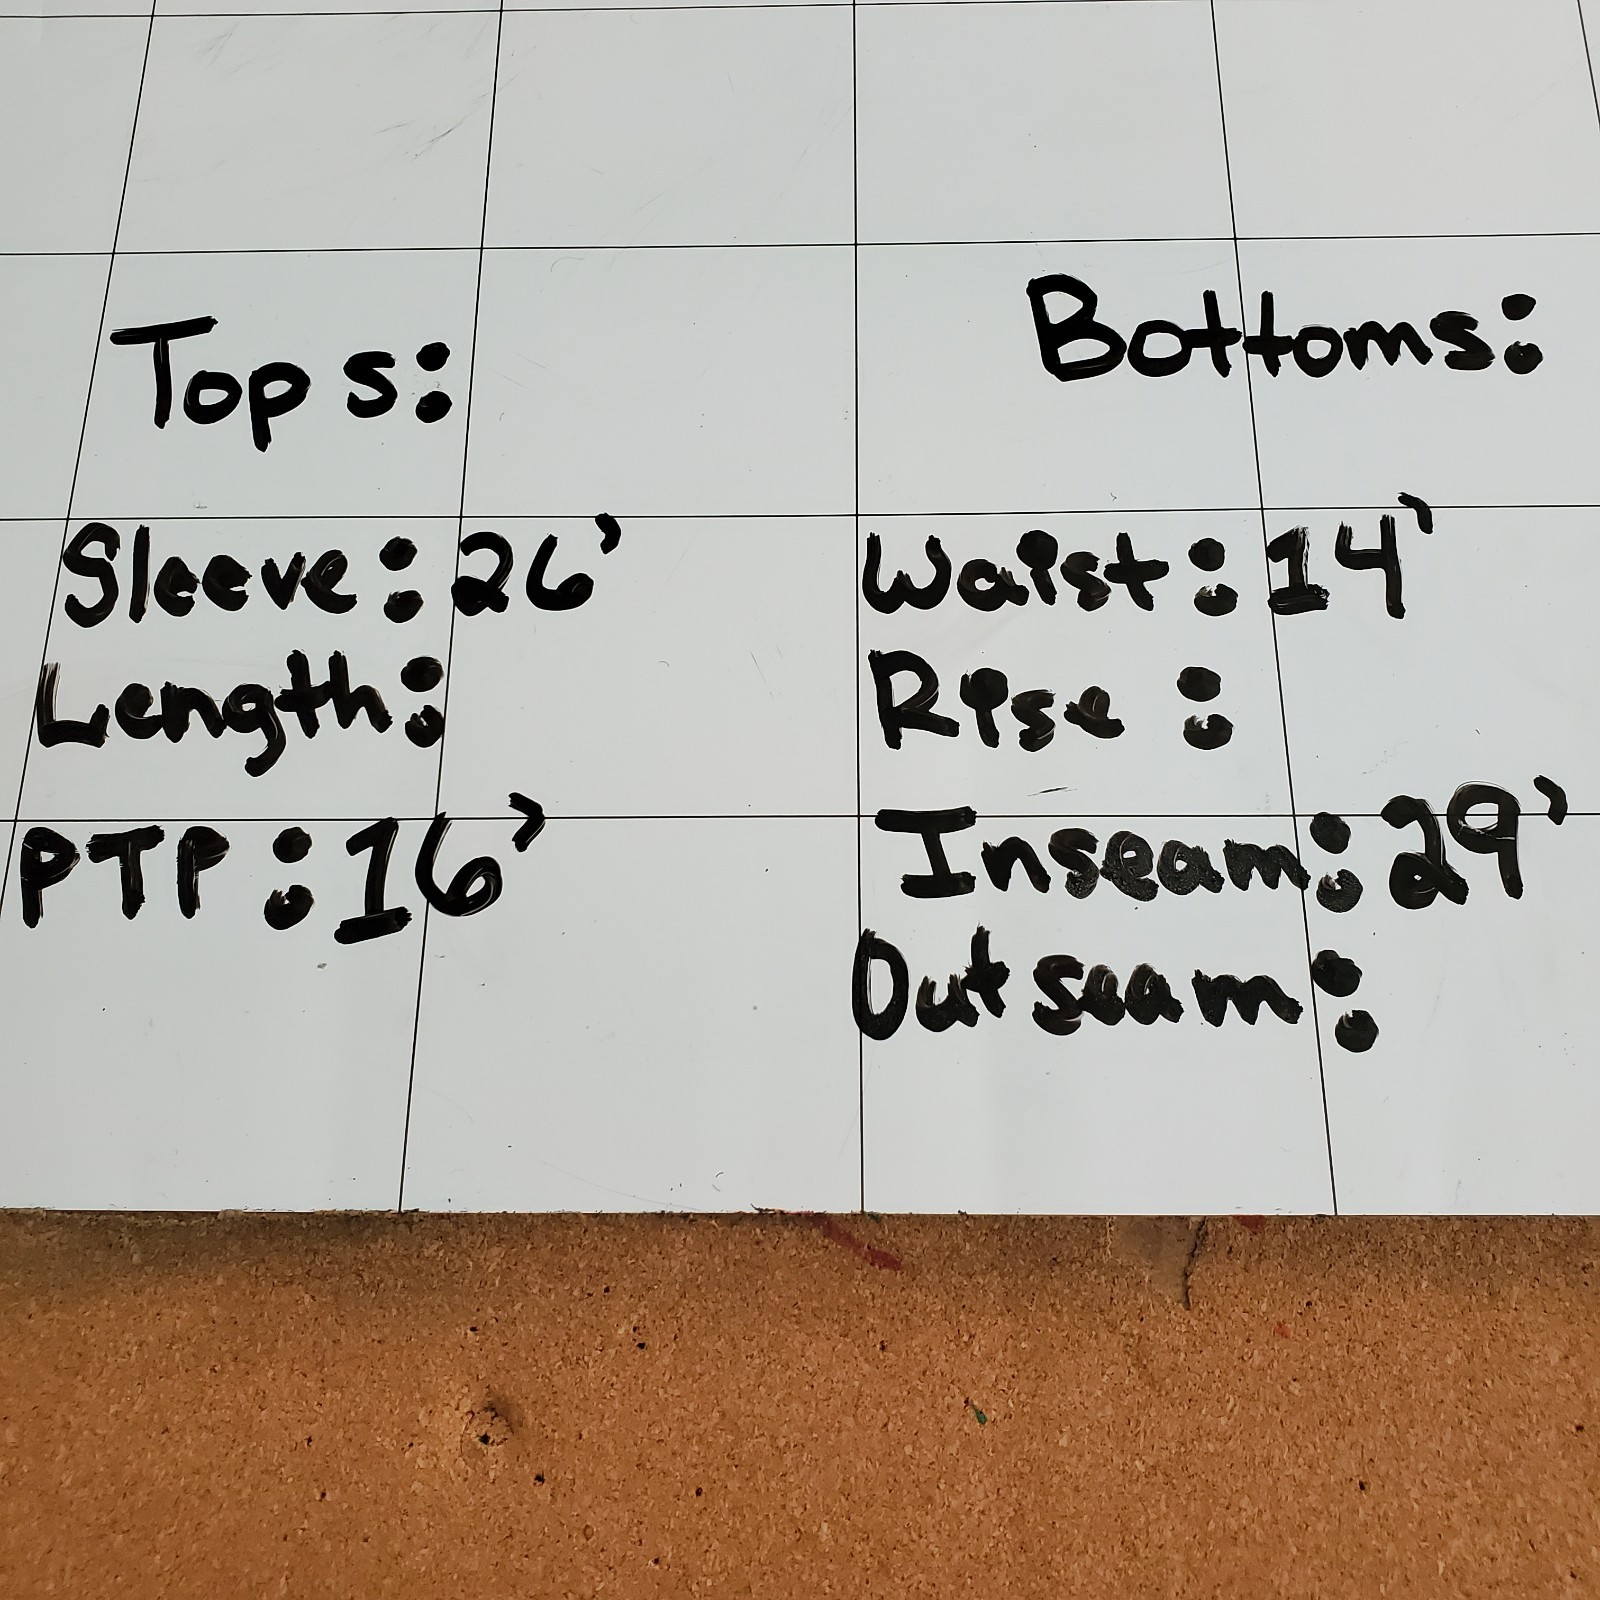 Tops:
Sleeve: 26'
Length:
PTP: 16'
Bottoms:
Waist: 14'
Rise :
Inseam: 29'
Outseam: